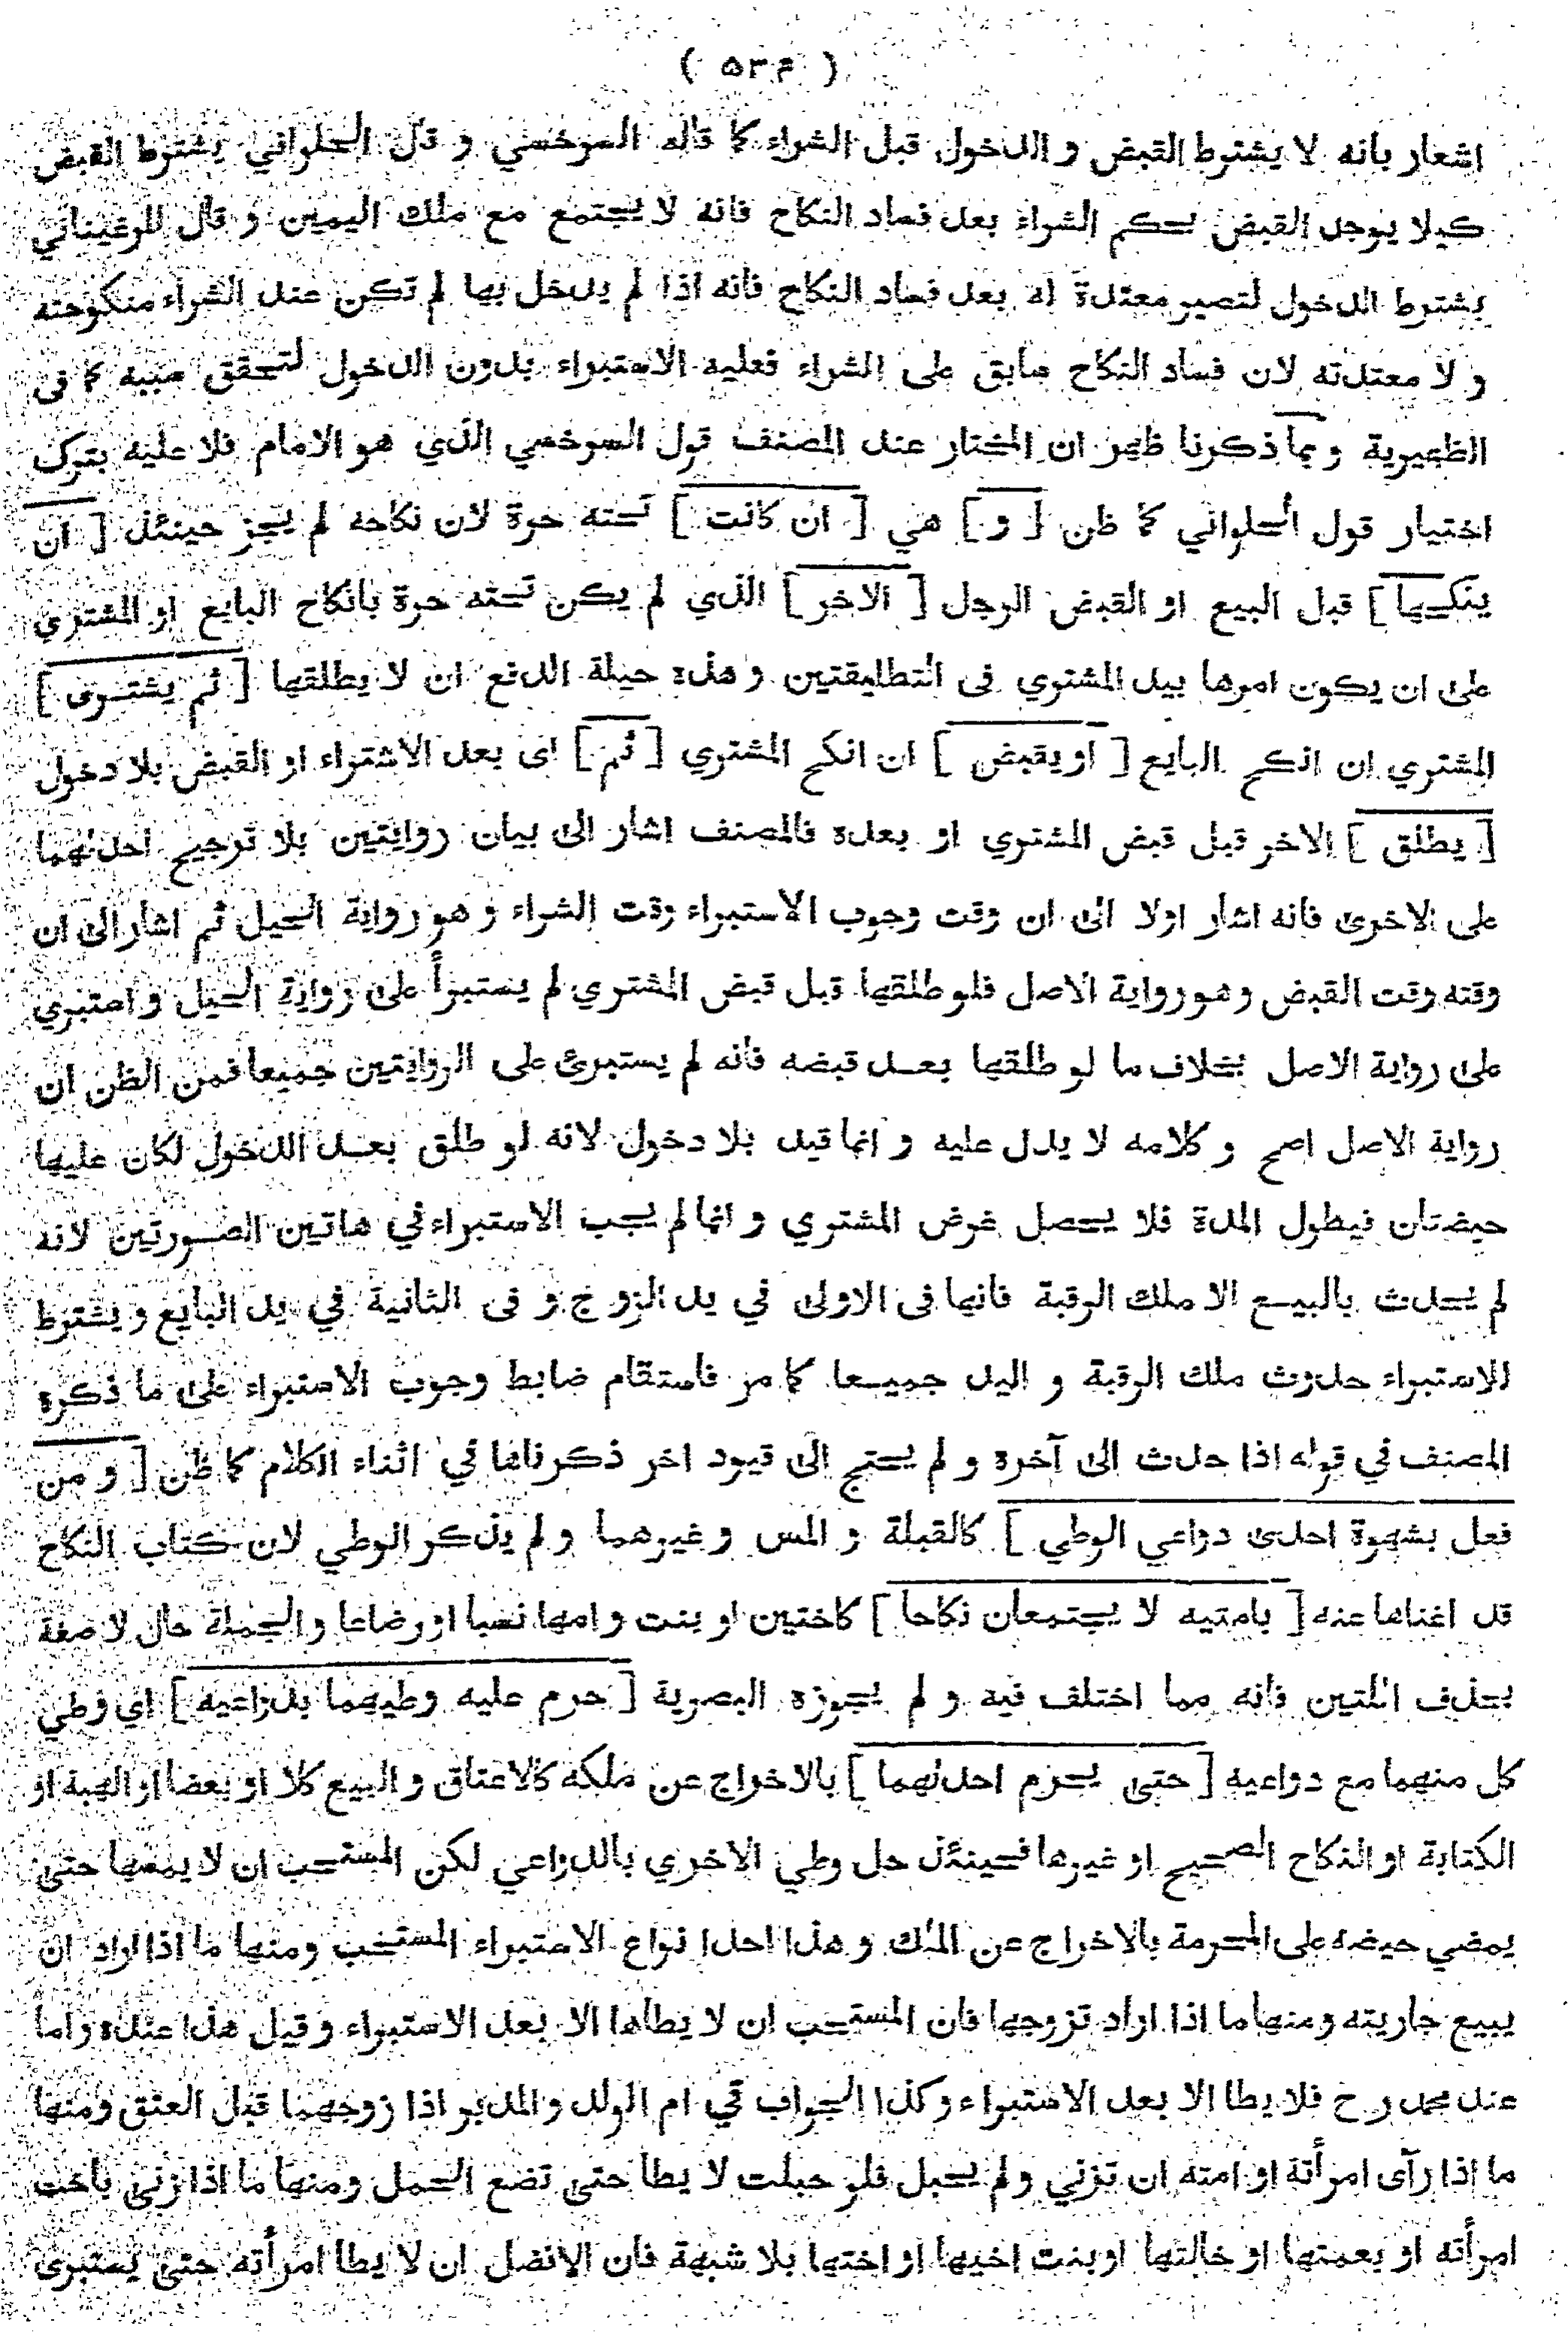 ( ٥٣٣ )
اشعار بانه لا يشترط القبض و الدخول قبل الشراء كما قاله السرخسي و قال الحلواني يشترط القبض
كيلا يوجد القبض بحكم الشراء بعد فساد النكاح فانه لا يجتمع مع ملك اليمين و قال المرغيناني
يشترط الدخول لتصير معتدة له بعد فساد النكاح فانه اذا لم يدخل بها لم تكن عند الشراء منكوحته
و لا معتدته لان فساد النكاح سابق على الشراء فعليه الاستبراء بدون الدخول لتحقق سببه كما فى
الظهيرية و بما ذكرنا ظهر ان المختار عند المصنف قول السرخسي الذي هو الامام فلا عليه بترك
اختيار قول الحلواني كما ظن [ و ] هي [ ان كانت ] تحته حرة لان نكاحه لم يجز حينئذ [ ان
ينكحها ] قبل البيع او القبض الرجل [ الاخر ] الذي لم يكن تحته حرة بانكاح البايع او المشتري
على ان يكون امرها بيد المشتري فى التطليقتين و هذه حيلة الدفع ان لا يطلقها [ ثم يشترى ]
المشتري ان انكح البايع [ او يقبض ] ان انكح المشتري [ ثم ] اى بعد الاشتراء او القبض بلا دخول
[ يطلق ] الاخر قبل قبض المشتري او بعده فالمصنف اشار الى بيان روايتين بلا ترجيح احدٰهما
على الاخرى فانه اشار اولا الى ان وقت وجوب الاستبراء وقت الشراء و هو رواية الحيل ثم اشار الى ان
وقته وقت القبض و هو رواية الاصل فلو طلقها قبل قبض المشتري لم يستبرأ على رواية الحيل و استبري
على رواية الاصل بخلاف ما لو طلقها بعد قبضه فانه لم يستبرئ على الروايتين جميعا فمن الظن ان
رواية الاصل اصح و كلامه لا يدل عليه و انما قيد بلا دخول لانه لو طلق بعد الدخول لكان عليها
حيضتان فيطول المدة فلا يحصل غرض المشتري و انما لم يجب الاستبراء في هاتين الصورتين لانه
لم يحدث بالبيع الا ملك الرقبة فانها فى الاولى في يد الزوج و فى الثانية في يد البايع و يشترط
للاستبراء حدوث ملك الرقبة و اليد جميعا كما مر فاستقام ضابط وجوب الاستبراء على ما ذكره
المصنف في قوله اذا حدث الى آخره و لم يحتج الى قيود اخر ذكرناها في اثناء الكلام كما ظن [ و من
فعل بشهوة احدى دواعي الوطي ] كالقبلة و المس و غيرهما و لم يذكر الوطي لان كتاب النكاح
قد اغناها عنه [ بامتيه لا يجتمعان نكاحا ] كاختين او بنت و امها نسبا او رضاعا و الجملة حال لا صفة
بحذف اللتين فانه مما اختلف فيه و لم يجوزه البصرية [ حرم عليه وطيهما بدواعيه ] اي وطي
كل منهما مع دواعيه [ حتى يحرم احدٰهما ] بالاخراج عن ملكه كالاعتاق و البيع كلا او بعضا او الهبة او
الكتابة او النكاح الصحيح او غيرها فحينئذ حل وطي الاخري بالدواعي لكن المستحب ان لا يمسها حتى
يمضي حيضه على المحرمة بالاخراج عن الملك و هذا احدا نواع الاستبراء المستحب و منها ما اذا اراد ان
يبيع جاريته و منها ما اذا اراد تزوجها فان المستحب ان لا يطاها الا بعد الاستبراء و قيل هذا عنده و اما
عند محمد رح فلا يطا الا بعد الاستبراء و كذا الجواب في ام الولد و المدبر اذا زوجهما قبل العتق و منها
ما اذا رآى امرأته او امته ان تزني و لم يحبل فلو حبلت لا يطا حتى تضع الحمل و منها ما اذا زنى باخت
امرأته او بعمتها او خالتها او بنت اخيها او اختها بلا شبهة فان الافضل ان لا يطا امرأته حتى يستبرى